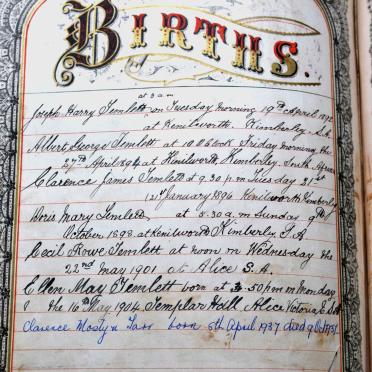 BIRTHS.
at 3 am
Joseph Harry Temlett on Tuesday morning 19th April 1892
at Kenilworth. Kimberley S.A.
Albert George Temlett at 10.0 clock Friday morning the
27th April 1894 at Kenilworth Kimberley South Africa
Clarence James Temlett at 9.30 p.m Tuesday 21st
January 1896 Kenilworth Kimberley
Doris Mary Temlett at 5.30 a.m Sunday 9th
October 1898 at Kenilworth Kimberley S.A
Cecil Rowe Temlett at noon on Wednesday the
22nd may 1901 at Alice S.A.
Ellen May Temlett born at 3.50 pm on Monday
the 16th May 1904 Templar Hall Alice Victoria E
Clarence Mostyn born 6th April 1937 died